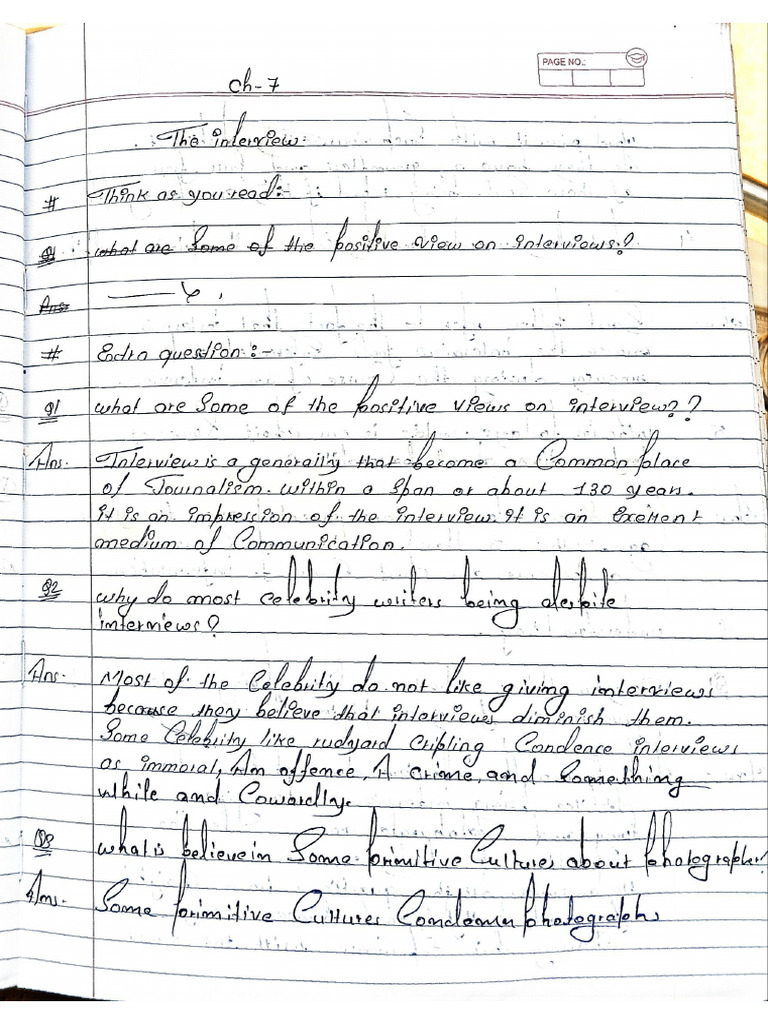 PAGE NO.:
Ch-7
The interview.
# Think as you read:-
Q1 what are Some of the positive view on interviews?
Ans
# Extra question:-
Q1 what are Some of the positive views on interview??
Ans. Interview is a generally that become a Common place
of Journalism. within a span or about 130 years.
it is an impression of the interview. it is an
medium of Communication.
Q2 why do most celebrity writers being despite
interviews?
Ans. Most of the Celebrity do not like giving interviews
because they believe that interviews diminish them.
Some Celebrity like rudyard Cripling Condence interviews
as immoral, An offence, A crime, and Something
while and Cowardly.
Q3 what is believe in Some primitive Cultures about photographer!
Ans. Some primitive Cultures photographs